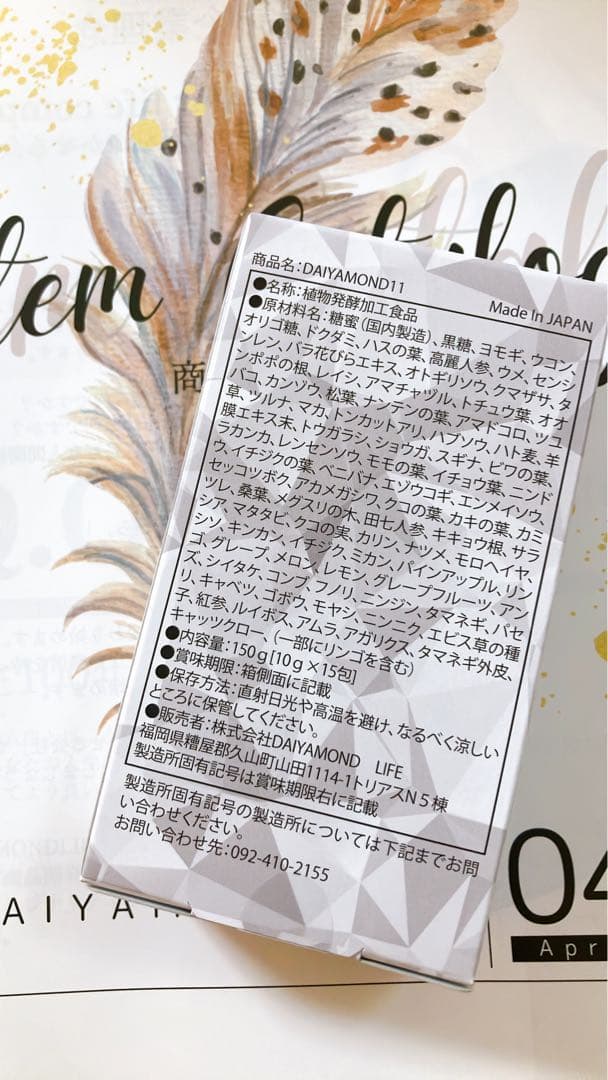 tem
商
商品名：DAIYAMOND11
Made In JAPAN
●名称：植物発酵加工食品
●原材料名：糖蜜（国内製造）、黒糖、ヨモギ、ウコン、
オリゴ糖、ドクダミ、ハスの葉、高麗人参、ウメ、センシ
ンレン、バラ花びらエキス、オトギリソウ、クマザサ、タ
ンポポの根、レイシ、アマチャヅル、トチュウ葉、オオ
バコ、カンゾウ、松葉、ナンテンの葉、アマドコロ、ツユ
草、ツルナ、マカ、トンカットアリ、ハブソウ、ハト麦、羊
膜エキス末、トウガラシ、ショウガ、スギナ、ビワの葉、
ラカンカ、レンセンソウ、モモの葉、イチョウ葉、ニンド
ウ、イチジクの葉、ベニバナ、エゾウコギ、エンメイソウ、
セッコツボク、アカメガシワ、クコの葉、カキの葉、カミ
ツレ、桑葉、メグスリの木、田七人参、キキョウ根、サラ
シア、マタタビ、クコの実、カリン、ナツメ、モロヘイヤ、
シソ、キンカン、イチジク、ミカン、パインアップル、リン
ゴ、グレープ、メロン、レモン、グレープフルーツ、アン
ズ、シイタケ、コンブ、フノリ、ニンジン、タマネギ、パセ
リ、キャベツ、ゴボウ、モヤシ、ニンニク、エビス草の種
子、紅参、ルイボス、アムラ、アガリクス、タマネギ外皮、
キャッツクロー、（一部にリンゴを含む）
●内容量：150g[10g×15包]
●賞味期限：箱側面に記載
●保存方法：直射日光や高温を避け、なるべく涼しい
ところに保管してください。
●販売者：株式会社DAIYAMOND LIFE
福岡県糟屋郡久山町山田1114-1トリアスN５棟
製造所固有記号は賞味期限右に記載
製造所固有記号の製造所については下記までお問
い合わせください。
お問い合わせ先：092-410-2155
04
AIYA
Apr